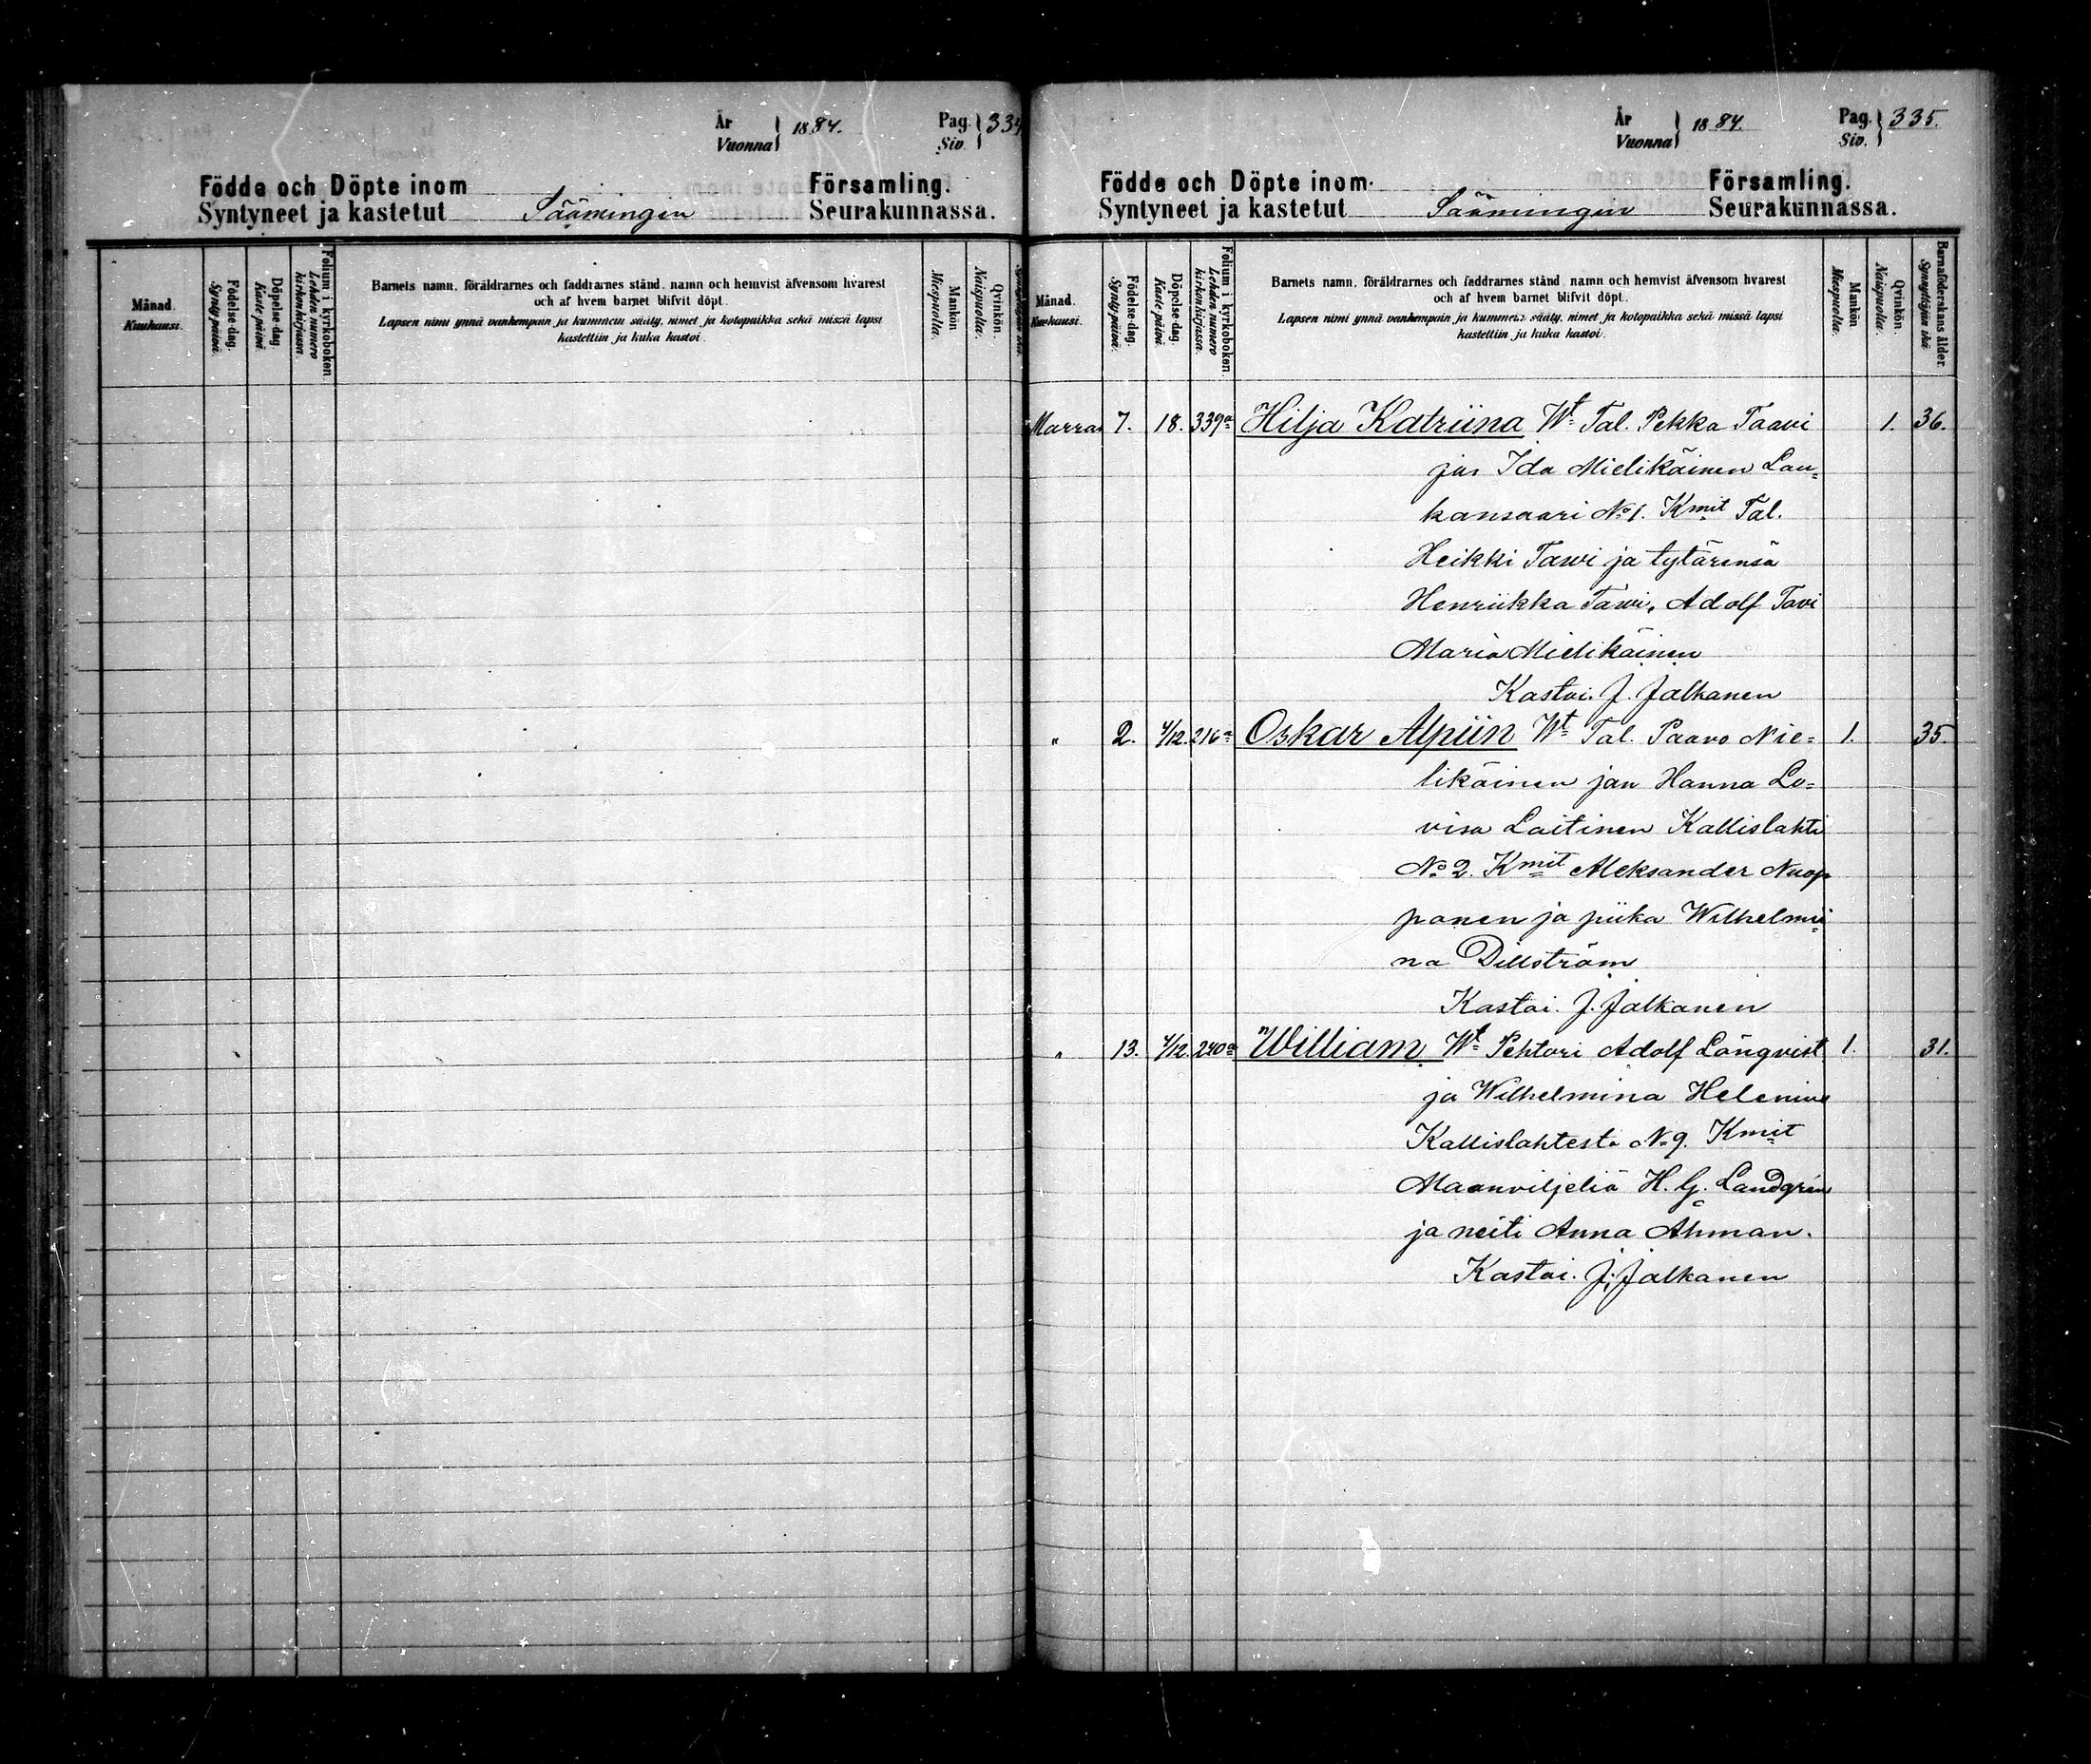 År
Vuonna } 1884.
Pag.
Siv. } 334
Födde och Döpte inom Församling.
Syntyneet ja kastetut Säämingin Seurakunnassa.
Månad.
Kuukausi.
Födelse-dag.
Synty-päivä.
Döpelse-dag.
Kaste-päivä.
Folium i kyrkoboken.
Lehden numero
kirkonkirjassa.
Barnets namn, föräldrarnes och faddrarnes stånd, namn och hemvist äfvensom hvarest
och af hvem barnet blifvit döpt.
Lapsen nimi ynnä vanhempain ja kummein sääty, nimet ja kotopaikka sekä missä lapsi
kastettiin ja kuka kastoi.
Mankön
Miespuolia.
Qvinkön.
Naispuolia.
År
Vuonna } 1884.
Pag.
Siv. } 335.
Födde och Döpte inom Församling.
Syntyneet ja kastetut Säämingin Seurakunnassa.
Månad.
Kuukausi.
Födelse-dag.
Synty-päivä.
Döpelse-dag.
Kaste-päivä.
Folium i kyrkoboken.
Lehden numero
kirkonkirjassa.
Barnets namn, föräldrarnes och faddrarnes stånd, namn och hemvist äfvensom hvarest
och af hvem barnet blifvit döpt.
Lapsen nimi ynnä vanhempain ja kummein sääty, nimet ja kotopaikka sekä missä lapsi
kastettiin ja kuka kastoi.
Mankön
Miespuolia.
Qvinkön.
Naispuolia.
Barnaföderskans ålder.
Synnyttäjän ikä
Marras 7. 18. 339a Hilja Katriina Wt Tal. Pekka Taavi 1. 36.
jas Ida Mielikäinen Lau=
kansaari No 1. Kmit Tal.
Heikki Tawi ja tytärensä
Henriikka Tawi, Adolf Tavi
Maria Mielikäinen
Kastoi. J. Jalkanen
" 2. 4/12. 216a Oskar Alpiin Wt Tal. Paavo Mie= 1. 35.
likäinen jan Hanna Lo=
visa Laitinen Kallislahti
No 2. Kmit Aleksander Nuop
ponen ja piika Wilhelmi=
na Dillström
Kastoi. J. Jalkanen
" 13. 4/12. 240a William Wt Pehtori Adolf Löngvist 1. 31.
ja Wilhelmina Helenius
Kallislahtesta No 9. Kmit
Maanviljeliä H. G. Landgrén
ja neiti Anna Åhman.
Kastoi. J. Jalkanen